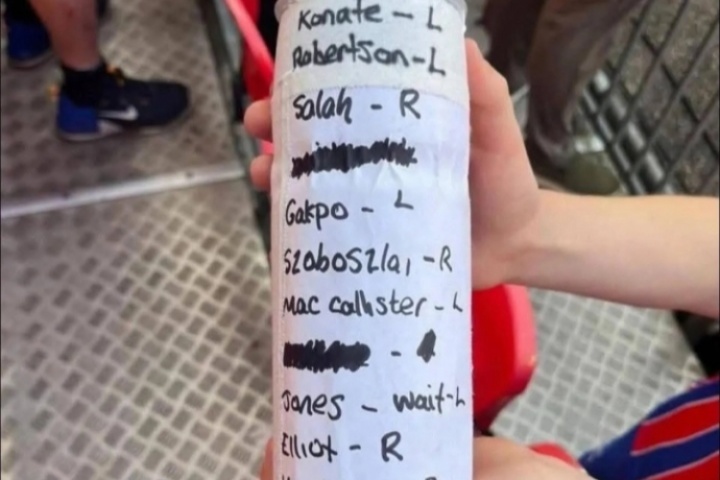 Konate - L
Robertson - L
Salah - R
Gakpo - L
Szoboszlai - R
Mac callister - L
-
Jones - wait - L
Elliot - R